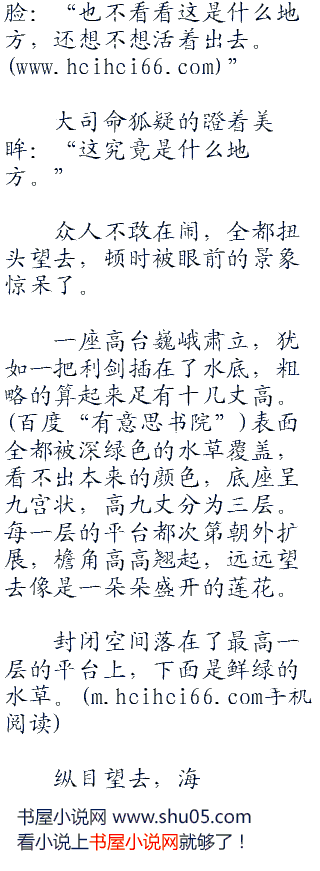 脸：“也不看看这是什么地
方，还想不想活着出去。
(www.hcihci66.com)”
大司命狐疑的瞪着美
眸：“这究竟是什么地
方。”
众人不敢在闹，全都扭
头望去，顿时被眼前的景象
惊呆了。
一座高台巍峨肃立，犹
如一把利剑插在了水底，粗
略的算起来足有十几丈高。
(百度“有意思书院”)表面
全都被深绿色的水草覆盖，
看不出本来的颜色，底座呈
九宫状，高九丈分为三层。
每一层的平台都次第朝外扩
展，檐角高高翘起，远远望
去像是一朵朵盛开的莲花。
封闭空间落在了最高一
层的平台上，下面是鲜绿的
水草。(m.hcihci66.com手机
阅读)
纵目望去，海
书屋小说网 www.shu05.com
看小说上书屋小说网就够了！